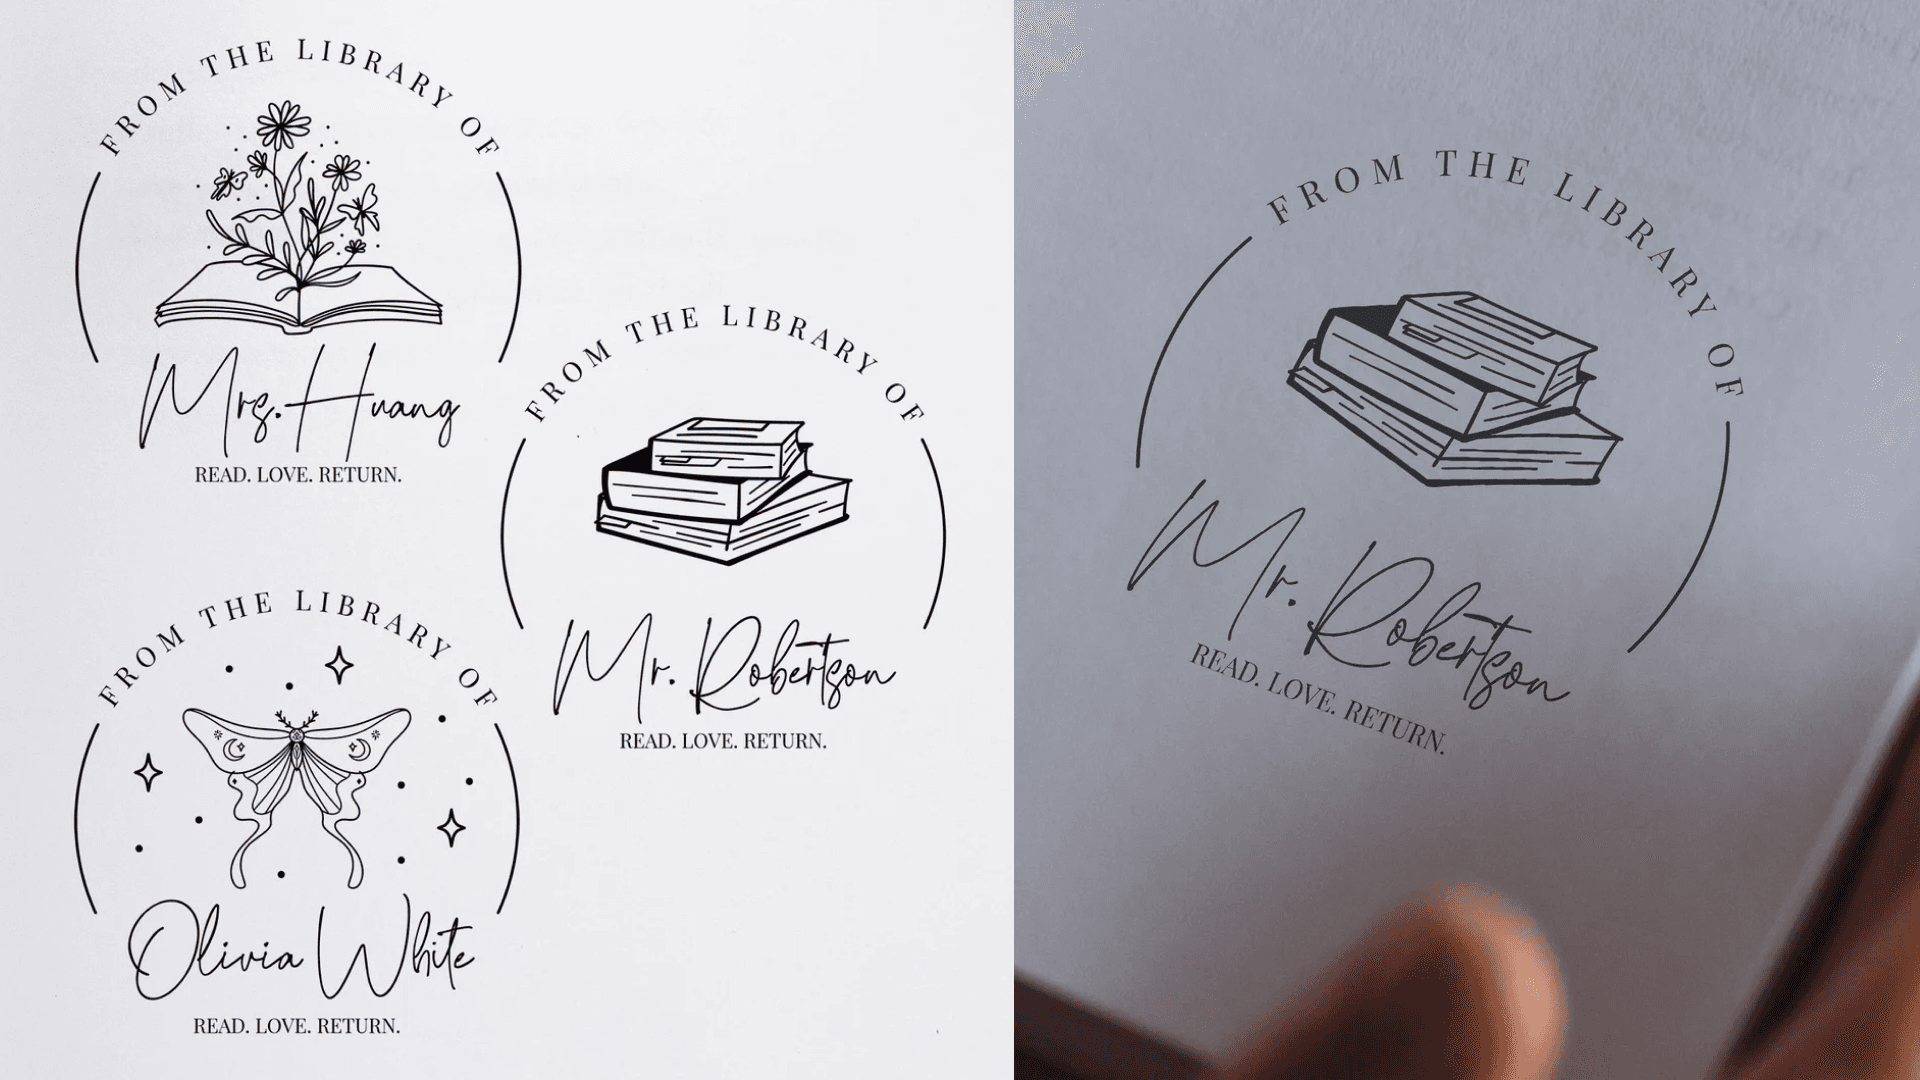 FROM THE LIBRARY OF
Mrs. Huang
READ. LOVE. RETURN.
FROM THE LIBRARY OF
Mr. Robertson
READ. LOVE. RETURN.
FROM THE LIBRARY OF
Olivia White
READ. LOVE. RETURN.
FROM THE LIBRARY OF
Mr. Robertson
READ. LOVE. RETURN.